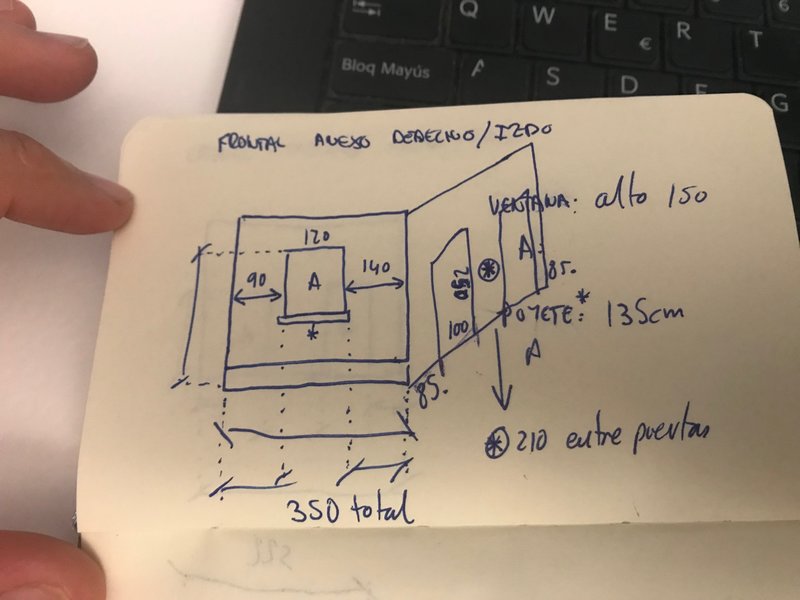 FRONTAL ANEXO DERECHO/IZDO
120
90
A
140
*
350 total
85.
250
100
⊛
A
85.
VENTANA: alto 150
POYETE:* 135cm
A
⊛ 210 entre puertas
Bloq Mayús
Q
W
E
€
R
T
S
D
F
G